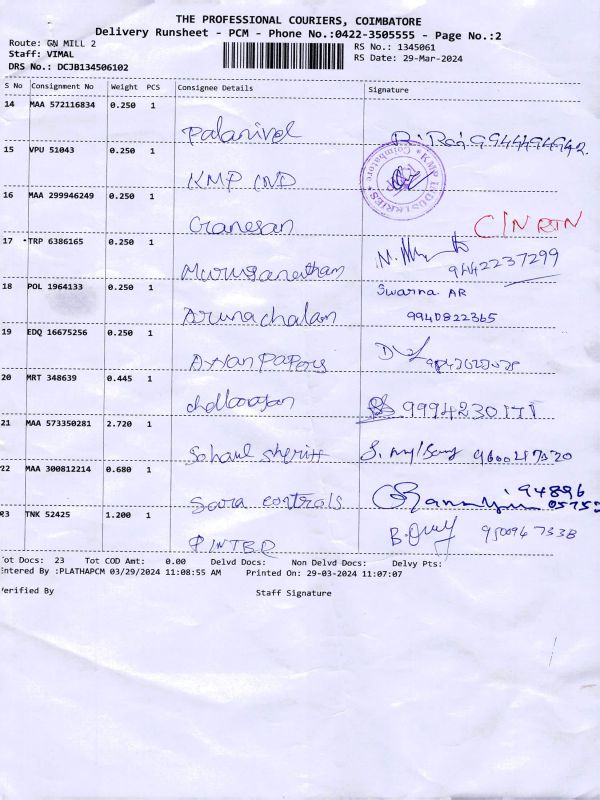 THE PROFESSIONAL COURIERS, COIMBATORE
Delivery Runsheet - PCM - Phone No.:0422-3505555 - Page No.:2
Route: GN MILL 2
RS No.: 1345061
Staff: VIMAL
RS Date: 29-Mar-2024
DRS No.: DCJB134506102
S No Consignment No Weight PCS Consignee Details Signature
14 MAA 572116834 0.250 1
Palanivel
15 VPU 51043 0.250 1
KMP IND
KMP INDUSTRIES Coimbatore
16 MAA 299946249 0.250 1
Ganesan C/N RTN
17 TRP 6386165 0.250 1
Muruganantham 9442237299
18 POL 1964133 0.250 1 Swarna AR
Arunachalam 9940822365
19 EDQ 16675256 0.250 1
Papers
20 MRT 348639 0.445 1
9994230171
21 MAA 573350281 2.720 1
Sheriff
22 MAA 300812214 0.680 1
controls 94896
23 TNK 52425 1.200 1
Tot Docs: 23 Tot COD Amt: 0.00 Delvd Docs: Non Delvd Docs: Delvy Pts:
Entered By :PLATHAPCM 03/29/2024 11:08:55 AM Printed On: 29-03-2024 11:07:07
Verified By Staff Signature